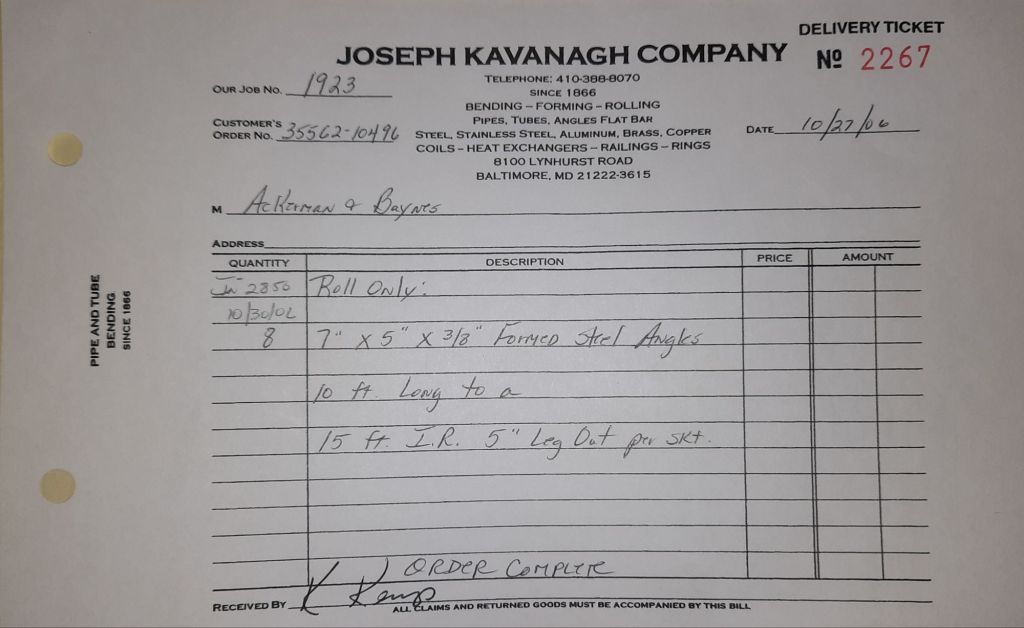 DELIVERY TICKET
JOSEPH KAVANAGH COMPANY
Nº 2267
TELEPHONE: 410-388-8070
SINCE 1866
BENDING – FORMING – ROLLING
PIPES, TUBES, ANGLES FLAT BAR
STEEL, STAINLESS STEEL, ALUMINUM, BRASS, COPPER
COILS – HEAT EXCHANGERS – RAILINGS – RINGS
8100 LYNHURST ROAD
BALTIMORE, MD 21222-3615
OUR JOB NO. 1923
CUSTOMER'S
ORDER NO. 35562-10496
DATE 10/27/06
M Ackerman & Baynes
ADDRESS
QUANTITY DESCRIPTION PRICE AMOUNT
2850 Roll Only:
8 7" x 5" x 3/8" Formed Steel Angles
10 ft. Long to a
15 ft. I.R. 5" Leg Out per skt.
ORDER COMPLETE
RECEIVED BY K Kemp
ALL CLAIMS AND RETURNED GOODS MUST BE ACCOMPANIED BY THIS BILL
PIPE AND TUBE
BENDING
SINCE 1866